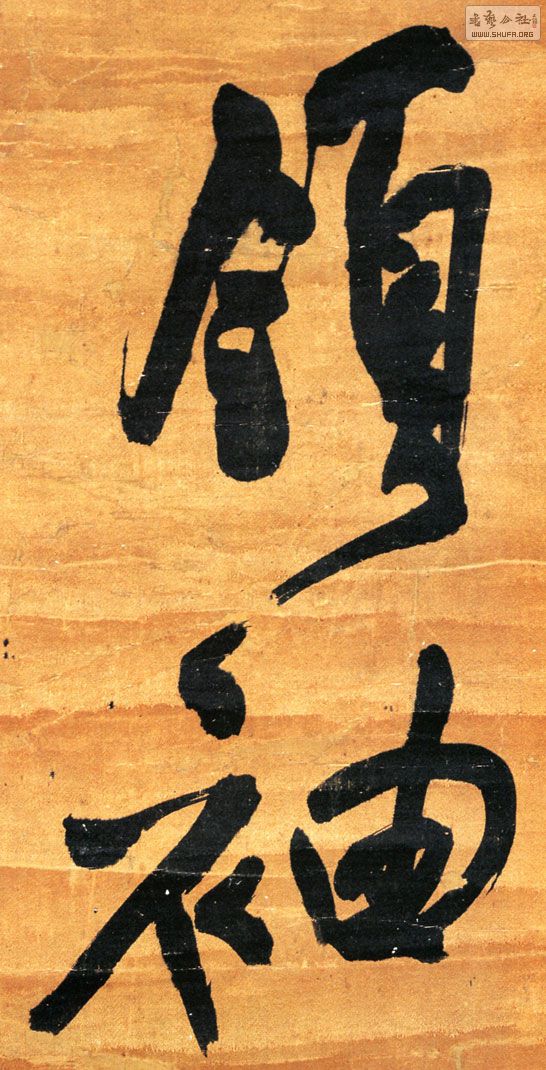 領袖
書藝公社
WWW.SHUFA.ORG